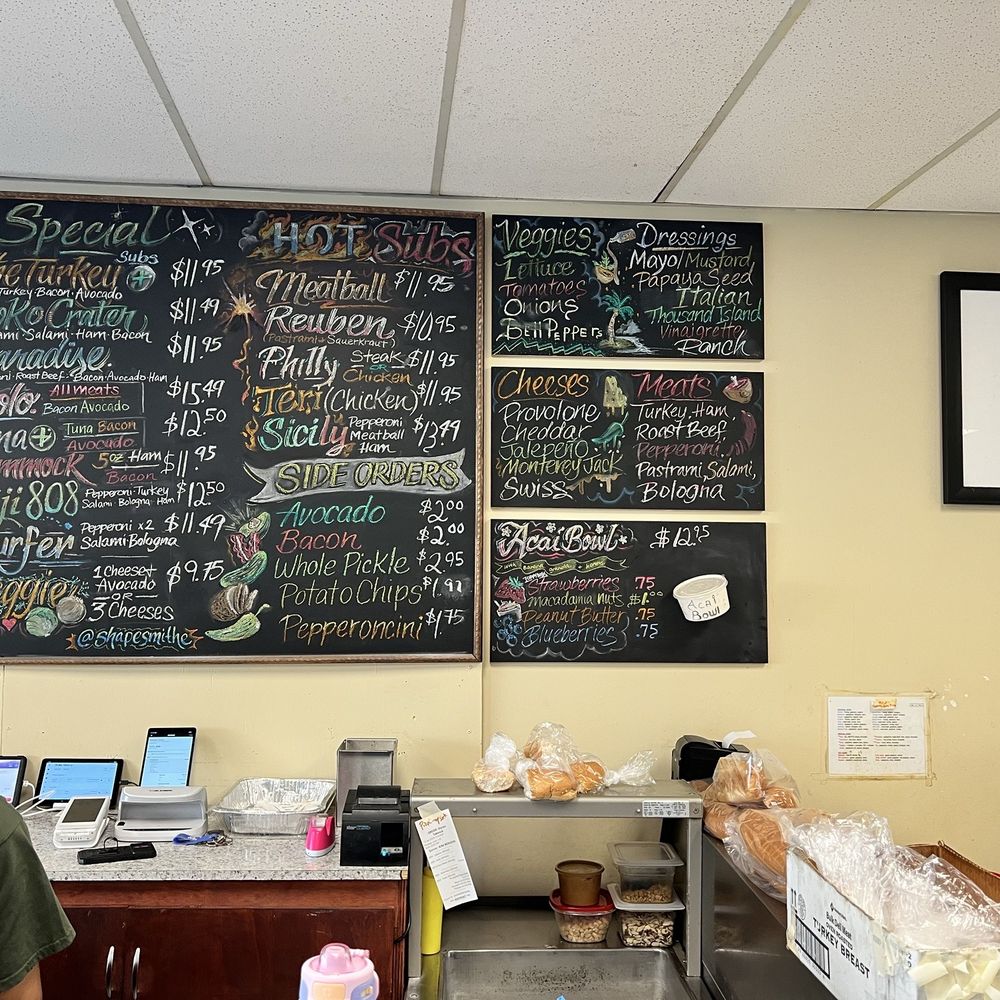 Special
Subs
Turkey +
$11.95
Turkey Bacon·Avocado
Crater
$11.49
Salami·Ham·Bacon
$11.95
Roast Beef·Bacon·Avocado·Ham
All meats
$15.49
Bacon Avocado
+
Tuna Bacon
Avocado
$12.50
5oz Ham
Bacon
$11.95
808
Pepperoni·Turkey
Salami·Bologna·Ham
$12.50
Pepperoni x2
Salami·Bologna
$11.49
1 Cheese+
Avocado
OR
3 Cheeses
$9.75
@shapesmithe
HOT Subs
Meatball $11.95
Reuben $10.95
(Pastrami+Sauerkraut)
Philly Steak OR Chicken $11.95
Teri (Chicken) $11.95
Sicily Pepperoni Meatball Ham $13.49
SIDE ORDERS
Avocado $2.00
Bacon $2.00
Whole Pickle $2.95
Potato Chips
Pepperoncini $1.75
Veggies
Lettuce
Tomatoes
Onions
Bell Peppers
Dressings
Mayo/Mustard,
Papaya Seed
Italian
Thousand Island
Vinaigrette
Ranch
Cheeses
Provolone
Cheddar
Jalapeño
Monterey Jack
Swiss
Meats
Turkey, Ham,
Roast Beef,
Pepperoni,
Pastrami, Salami,
Bologna
Acai Bowl $12.95
Strawberries .75
Macadamia nuts $1.00
Peanut Butter .75
Blueberries .75
Acai
Bowl
Bulk Deli Meat
TURKEY BREAST